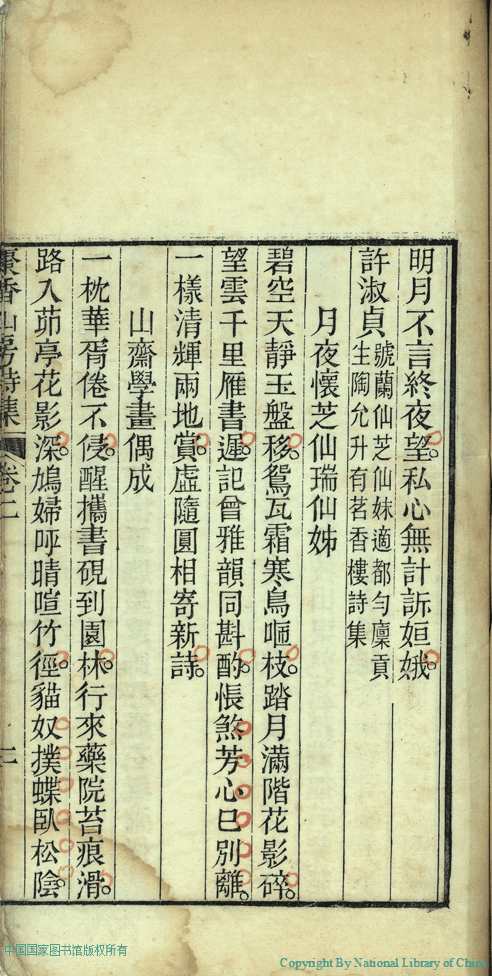 明月不言終夜望私心無計訴姮娥
許淑貞號蘭仙芝仙妹適都勻廩貢
生陶允升有茗香樓詩集
月夜懷芝仙瑞仙姊
碧空天靜玉盤移鴛瓦霜寒鳥嘔枝踏月滿階花影碎
望雲千里雁書遲記曾雅韻同斟酌悵煞芳心已別離
一樣清輝兩地賞虛隨圓相寄新詩
山齋學畫偶成
一枕華胥倦不侵醒攜書硯到園林行來藥院苔痕滑
路入茆亭花影深鳩婦呼晴喧竹徑貓奴撲蝶臥松陰
香山房詩集 卷二
中国国家图书馆版权所有
Copyright By National Library of China